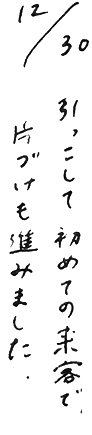 12/30
引っこして初めての来客で、
片づけも進みました.